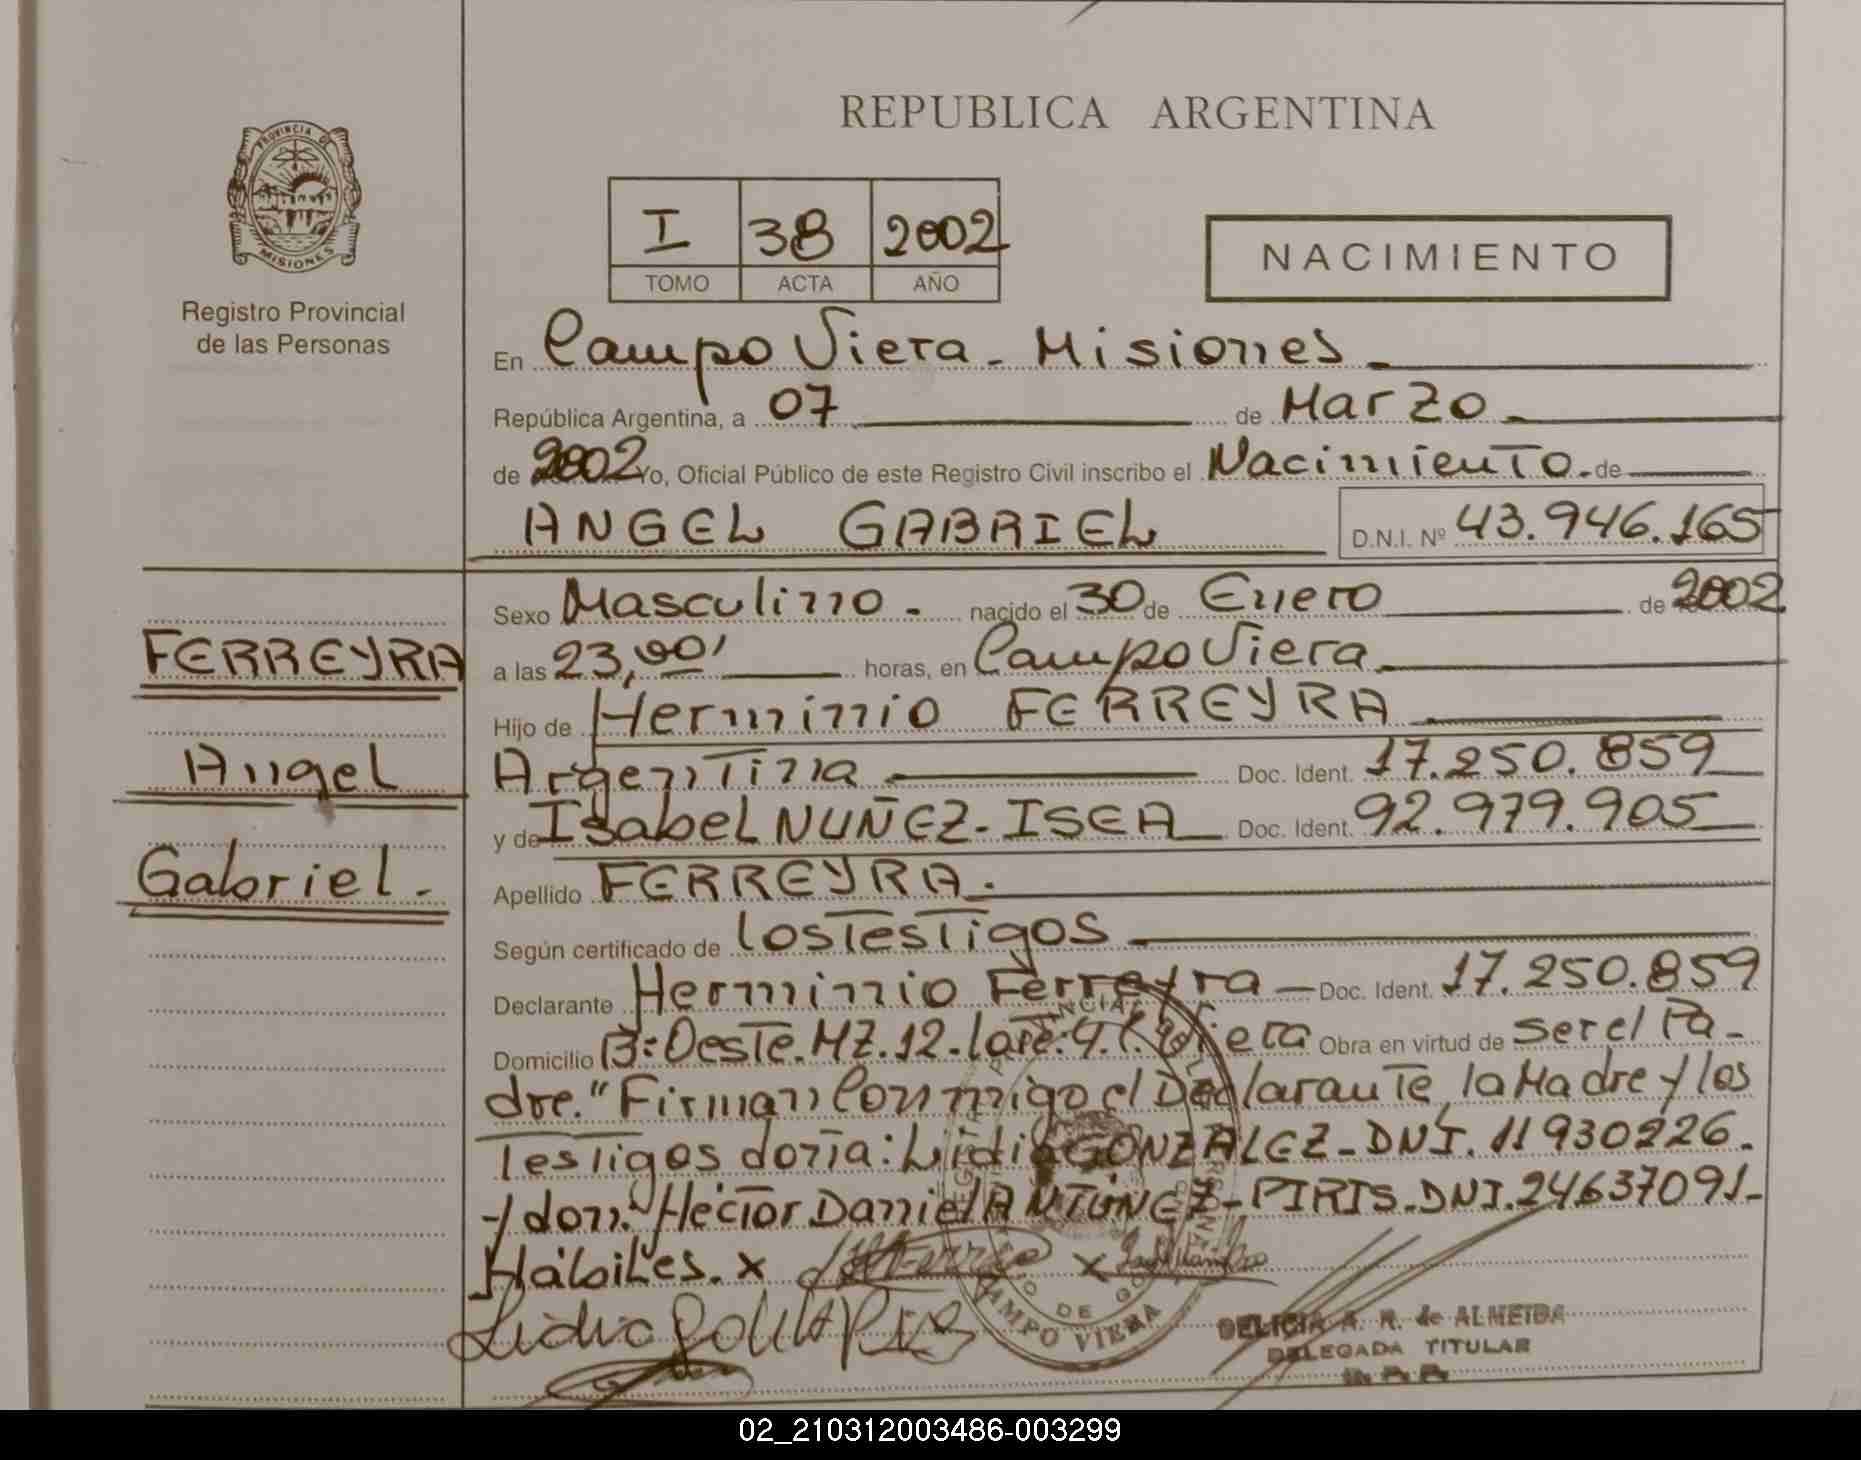 REPUBLICA ARGENTINA
PROVINCIA DE
MISIONES
Registro Provincial
de las Personas
I 38 2002
TOMO ACTA AÑO
NACIMIENTO
En Campo Viera - Misiones
República Argentina, a 07 de Marzo
de 2002 Yo, Oficial Público de este Registro Civil inscribo el Nacimiento de
ANGEL GABRIEL D.N.I. Nº 43.946.165
Sexo Masculino - nacido el 30 de Enero de 2002
FERREYRA
a las 23,00' horas, en Campo Viera
Hijo de Herminio FERREYRA
Angel
Argentina Doc. Ident. 17.250.859
y de Isabel NUÑEZ - ISEA Doc. Ident. 92.979.905
Gabriel -
Apellido FERREYRA.
Según certificado de los Testigos
Declarante Herminio Ferreyra - Doc. Ident. 17.250.859
Domicilio B: Oeste. MZ. 12. lote: 4. C. Viera Obra en virtud de ser el Pa-
dre. "Firman Conmigo el Declarante, la Madre y los
Testigos doña: Lidia GONZALEZ - DNI. 11930226.
y don: Héctor Daniel ANTUNEZ - PIRIS - DNI. 24637091 -
Hábiles. x x
CAMPO VIERA
DELICIA A. R. de ALMEIDA
DELEGADA TITULAR
02_210312003486-003299